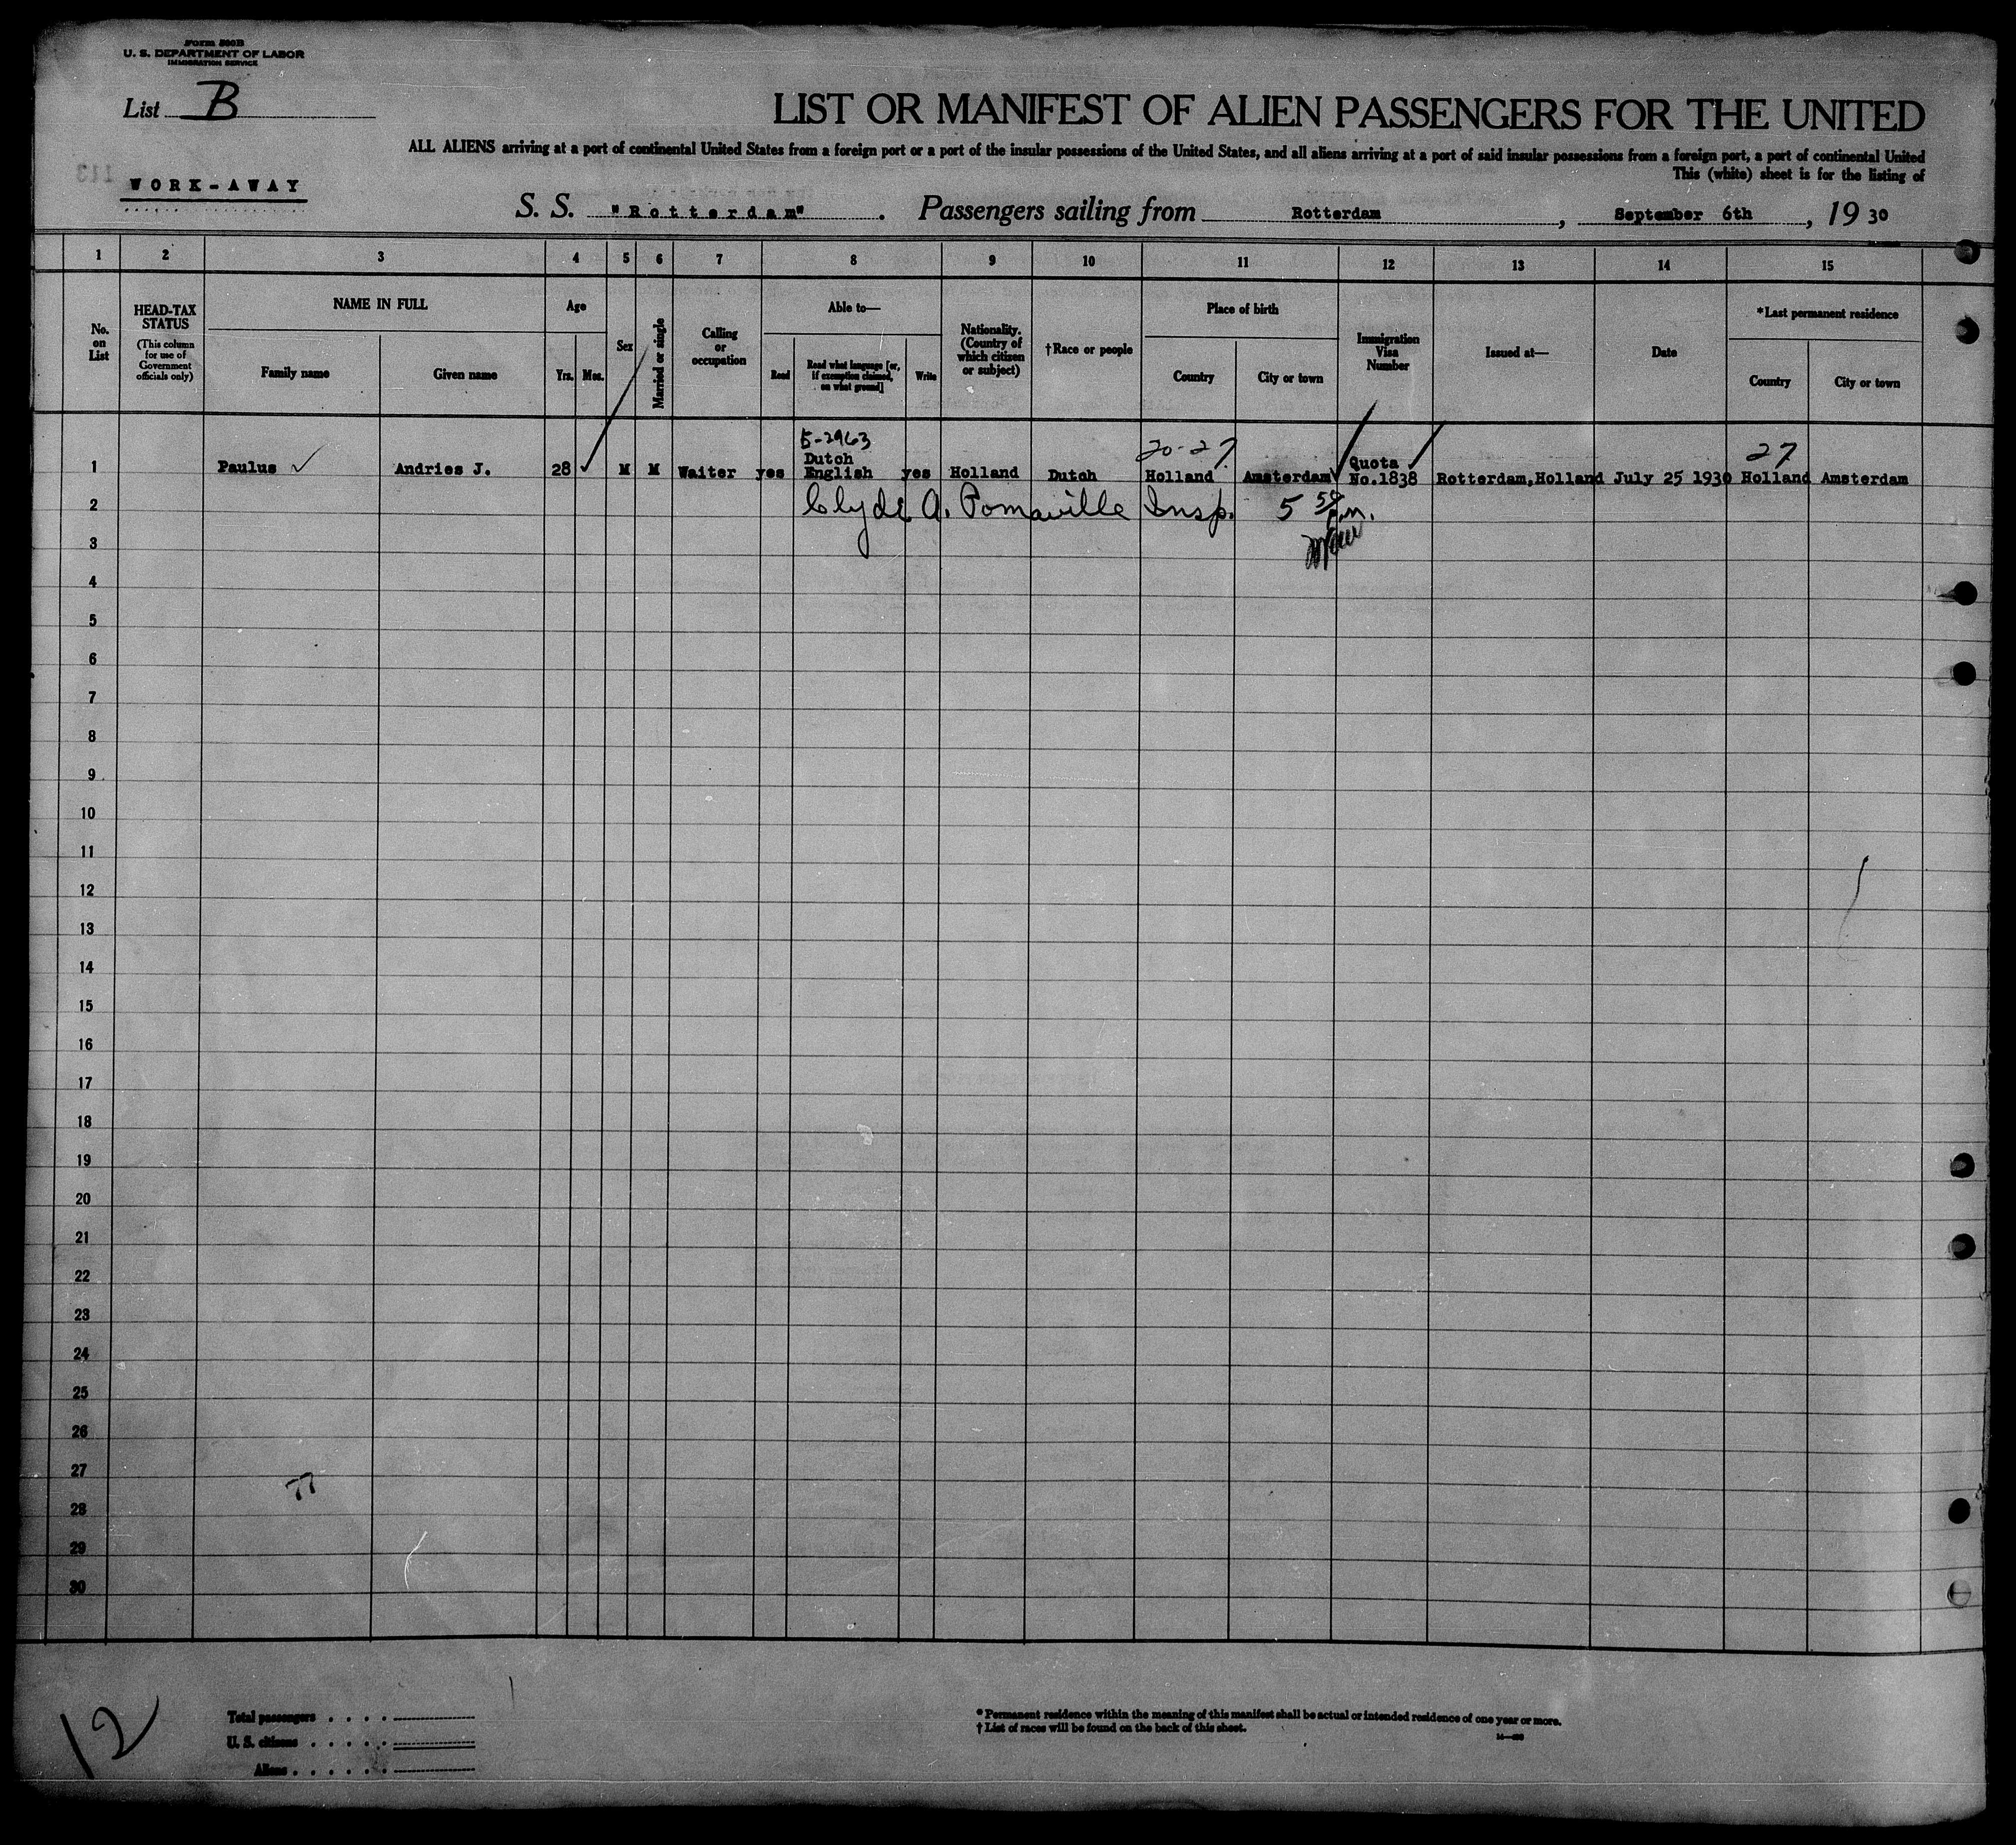 Form 500B
U. S. DEPARTMENT OF LABOR
IMMIGRATION SERVICE
List B
LIST OR MANIFEST OF ALIEN PASSENGERS FOR THE UNITED
ALL ALIENS arriving at a port of continental United States from a foreign port or a port of the insular possessions of the United States, and all aliens arriving at a port of said insular possessions from a foreign port, a port of continental United
This (white) sheet is for the listing of
113
WORK-AWAY
S. S. "Rotterdam" . Passengers sailing from Rotterdam , September 6th , 19 30
1 2 3 4 5 6 7 8 9 10 11 12 13 14 15
No. on List
HEAD-TAX STATUS
(This column for use of Government officials only)
NAME IN FULL
Family name
Given name
Age
Yrs. Mos.
Sex
Married or single
Calling or occupation
Able to—
Read
Read what language [or, if exemption claimed, on what ground]
Write
Nationality. (Country of which citizen or subject)
†Race or people
Place of birth
Country
City or town
Immigration Visa Number
Issued at—
Date
*Last permanent residence
Country
City or town
5-2963
20-27
27
1 Paulus ✓ Andries J. 28 ✓ M M Waiter yes Dutch English yes Holland Dutch Holland Amsterdam ✓ Quota No.1838 ✓ Rotterdam,Holland July 25 1930 Holland Amsterdam
2 Clyde A. Pomaville Insp. 5 p.m.
3
4
5
6
7
8
9
10
11
12
13
14
15
16
17
18
19
20
21
22
23
24
25
26
27
77
28
29
30
12
Total passengers . . . .
U. S. citizens . . . . .
Aliens . . . . . .
* Permanent residence within the meaning of this manifest shall be actual or intended residence of one year or more.
† List of races will be found on the back of this sheet.